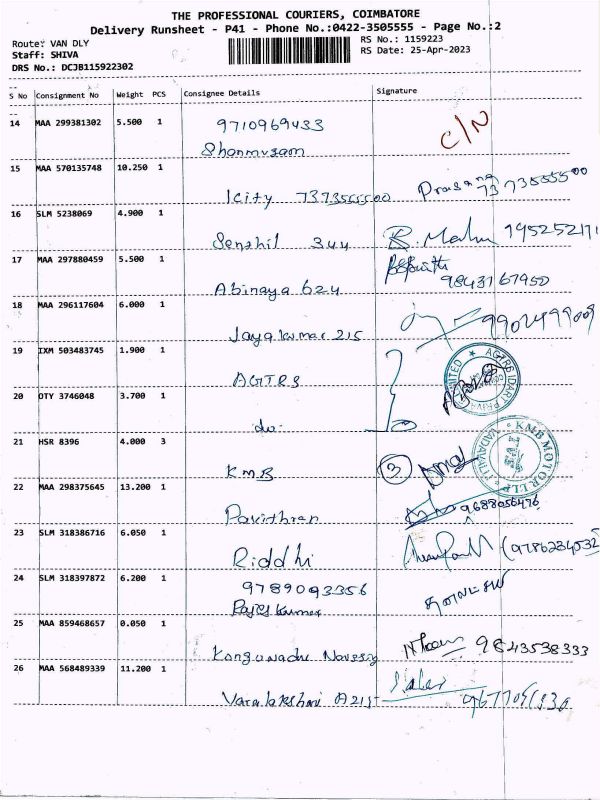 THE PROFESSIONAL COURIERS, COIMBATORE
Delivery Runsheet - P41 - Phone No.:0422-3505555 - Page No.:2
Route: VAN DLY
RS No.: 1159223
Staff: SHIVA
RS Date: 25-Apr-2023
DRS No.: DCJB115922302
S No Consignment No Weight PCS Consignee Details Signature
14 MAA 299381302 5.500 1 9710969433 C/N
Shanmugam
15 MAA 570135748 10.250 1
Icity 7373555500 Prasanna 7373555500
16 SLM 5238069 4.900 1
Senthil 344
17 MAA 297880459 5.500 1
Abinaya 624 9843167950
18 MAA 296117604 6.000 1
Jayakumar 215 9902499009
19 IXM 503483745 1.900 1
AGTRS
20 OTY 3746048 3.700 1
do.
21 HSR 8396 4.000 3
KMB 3
KMB MOTOR LLP
22 MAA 298375645 13.200 1
Pavithran 9688056476
23 SLM 318386716 6.050 1
Riddhi (9786234532
24 SLM 318397872 6.200 1 9789093356
Rajeskumar
25 MAA 859468657 0.050 1
Kongunadu 9843538333
26 MAA 568489339 11.200 1
Varalakshmi A215